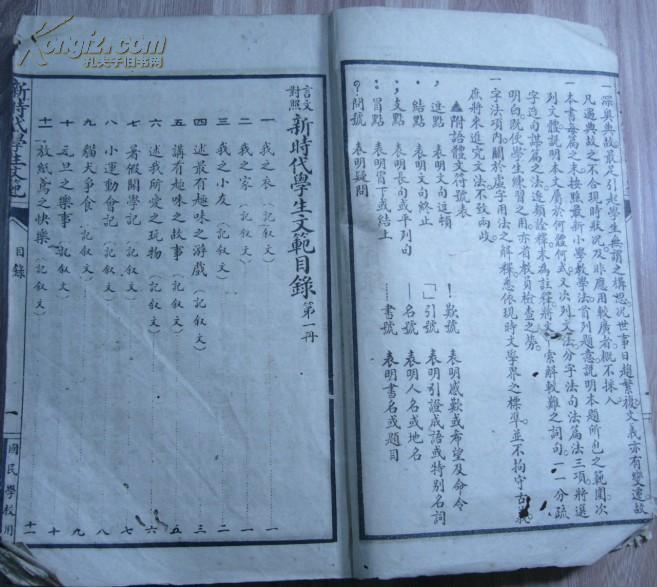 一深奧典故最足引起學生無謂之構想况世事日趨繁複文義亦有變遷故
凡遇典故之不合現時狀况及非應用較廣者概不採入
一本書每篇之末按照最新小學教學法首列題意說明本題所包之範圍次
列文體說明本文屬於何體何式又次列文法分字法句法篇法三項將選
字造句謀篇之法逐類詮釋末為註釋將文中索解較難之詞句一一分疏
明白既便學生練習之用亦省教員檢查之勞
一字法項內關於虛字用法之解釋悉依現時文學界之標準並不拘守古義
庶將來追究文法不致兩歧
▲附語體文符號表
，逗點 表明句逗頓
。結點 表明文句終止
；支點 表明長句或平列句
：冒點 表明冒下或結上
？問號 表明疑問
！歎號 表明感歎或希望及命令
「」引號 表明引證成語或特別名詞
——名號 表明人名或地名
……書號 表明書名或題目
言文對照 新時代學生文範目錄 第一冊
一 我之衣（記叙文） 一
二 我之家（記叙文） 一
三 我之小友（記叙文） 二
四 述最有趣味之游戲（記叙文） 三
五 講有趣味之故事（記叙文） 五
六 述我所愛之玩物（記叙文） 六
七 暑假開學記（記叙文） 七
八 小運動會記（記叙文） 八
九 貓犬爭食（記叙文） 九
十 元旦之樂事（記叙文） 十
十一 放紙鳶之快樂（記叙文） 十一
新時代學生文範
目錄
一
國民學校用
Kongfz.com
孔夫子旧书网